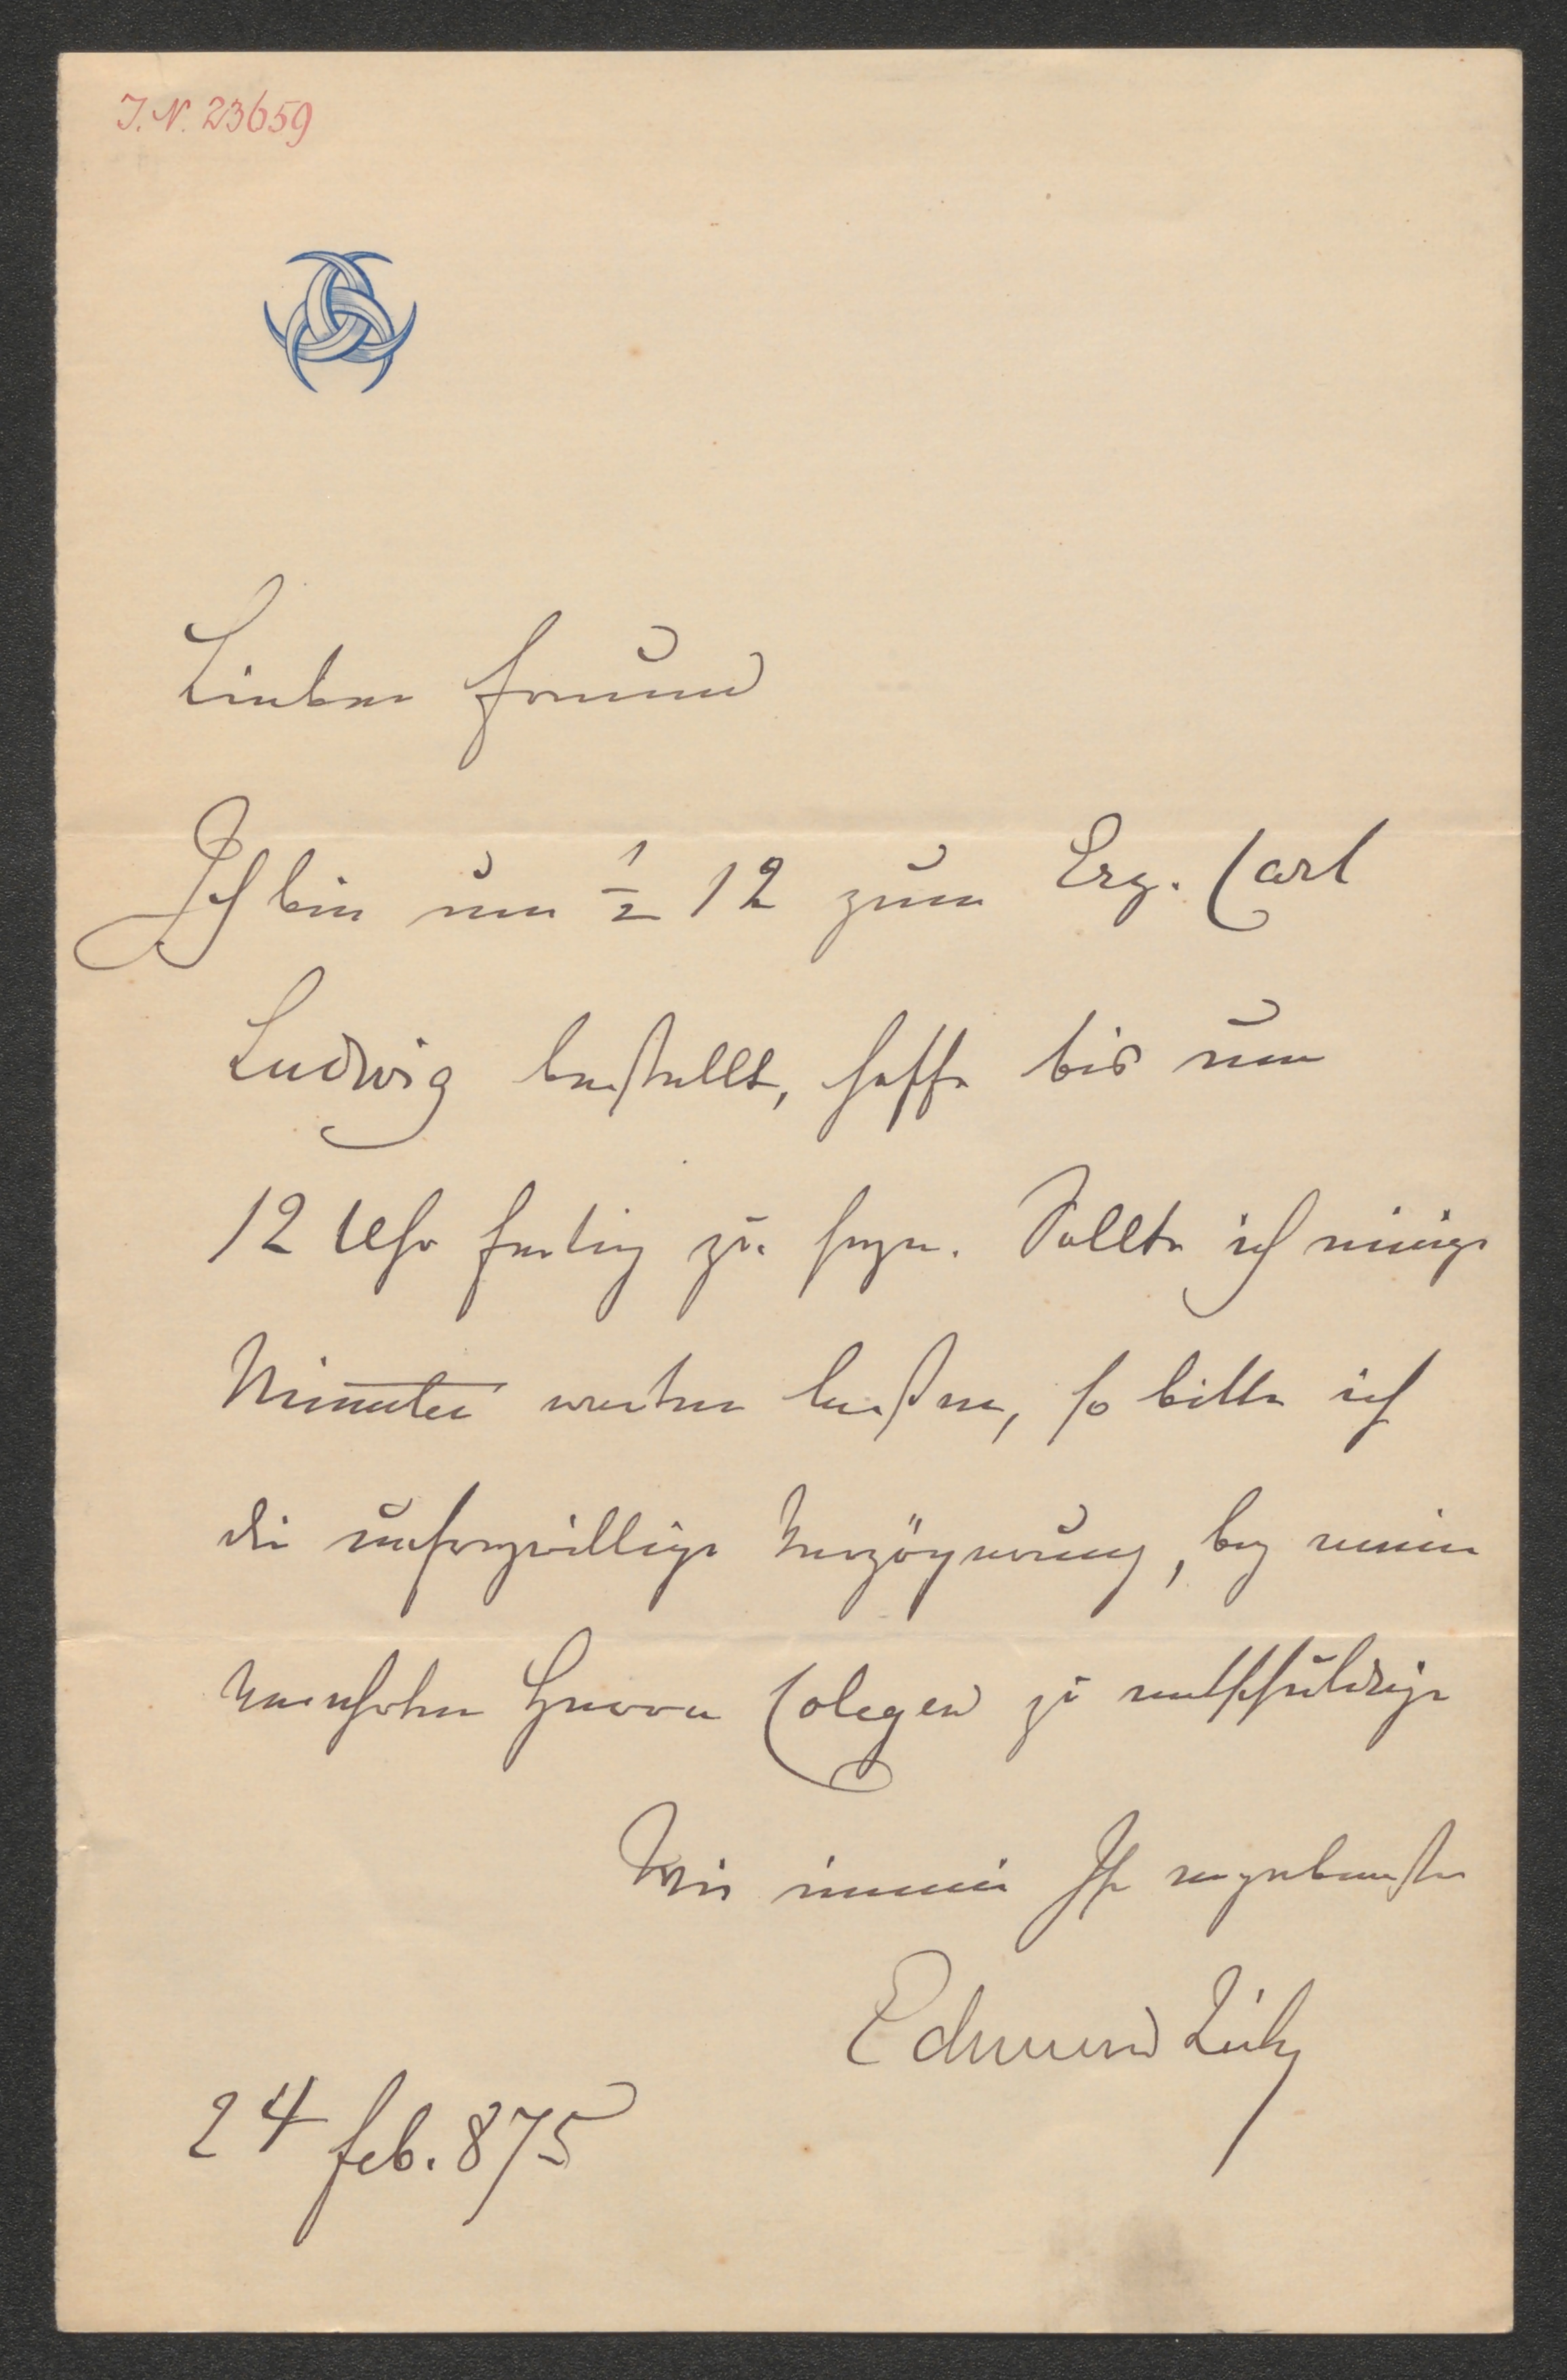 I. N. 23659
Lieber Freund
Ich bin um ½ 12 zum Erz. Carl
Ludwig bestellt, hoffe bis um
12 Uhr fertig zu seyn. Sollte ich einige
Minuten warten laßen, so bitte ich
die unfreywillige Verzögerung, bey meinen
verehrten Herren Colegen zu entschuldigen
Wie immer Ihr ergebenster
Edmund Zichy
24 Feb. 875